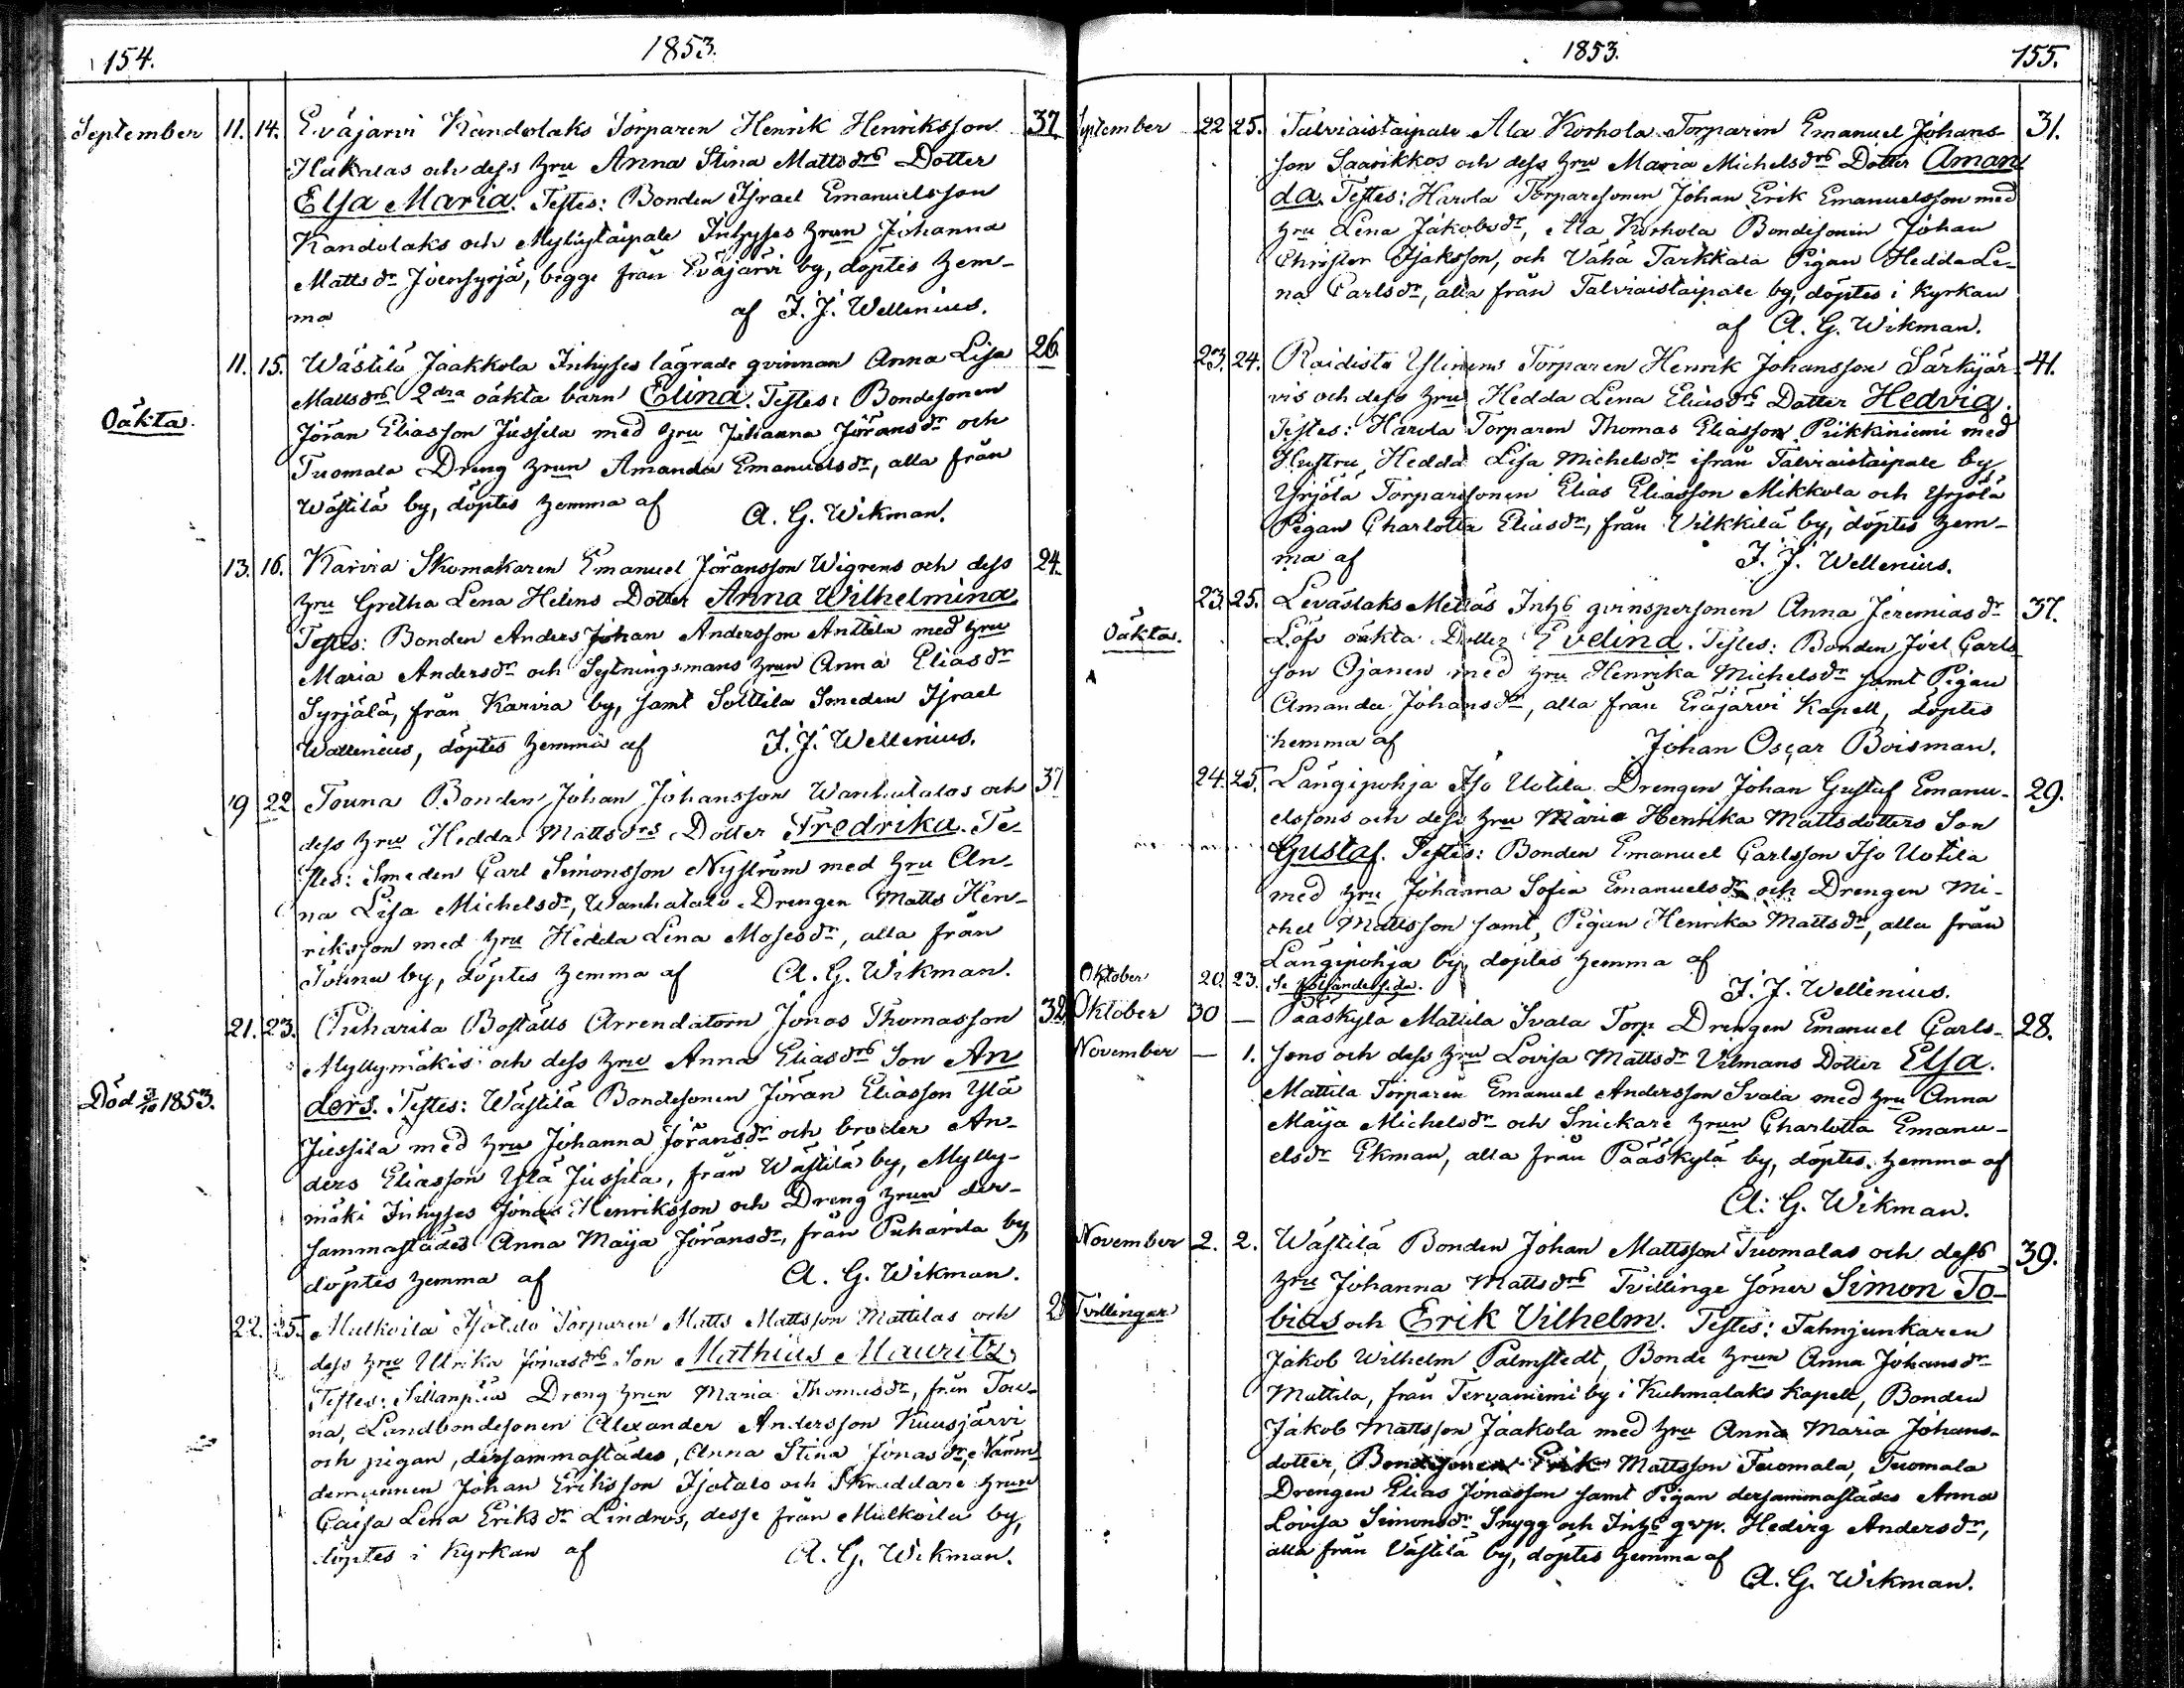 154. 1853.
September 11. 14. Eväjärvi Kandolaks Torparen Henrik Henriksson 37
Hukalas och dess hru Anna Stina Mattsdrs Dotter
Elsa Maria. Testes: Bonden Israel Emanuelsson
Kandolaks och Myllytaipale Inhyses hrun Johanna
Mattsdr Joensyrjä, begge från Eväjärvi by, döptes hem-
ma af J. J. Wellenius.
11. 15. Wästilä Jaakkola Inhyses lägrade qvinnan Anna Lisa 26
Oäkta. Mattsdrs 2dra oäkta barn Elina. Testes: Bondesonen
Jöran Eliasson Jussila med hru Johanna Jöransdr och
Tuomala Dreng hrun Amanda Emanuelsdr, alla från
Wästilä by, döptes hemma af A. G. Wikman.
13. 16. Karvia Skomakaren Emanuel Jöransson Wigrens och dess 24.
hru Gretha Lena Helens Dotter Anna Wilhelmina.
Testes: Bonden Anders Johan Andersson Anttila med hru
Maria Andersdr och Sytningsmans hrun Anna Eliasdr
Syrjälä, från Karvia by, samt Solttila Smeden Israel
Wallenius, döptes hemma af J. J. Wellenius.
19 22 Touna Bonden Johan Johansson Wanhatalos och 37
dess hru Hedda Mattsdrs Dotter Fredrika. Te-
stes: Smeden Carl Simonsson Nyström med hru An-
na Lisa Michelsdr, Wanhatalo Drengen Matts Hen-
riksson med hru Hedda Lena Mosesdr, alla från
Touna by, döptes hemma af A. G. Wikman.
21. 23. Puharila Boställs Arrendatorn Jonas Thomasson 32.
Myllymäkis och dess hru Anna Eliasdrs Son An
Död 3/10 1853. ders. Testes: Wästilä Bondesonen Jöran Eliasson Ylä
Jussila med hru Johanna Jöransdr och broder An-
ders Eliasson Ylä Jussila, från Wästilä by, Mylly-
mäki Inhyses Jonas Henriksson och Dreng hrun der-
sammastädes Anna Maija Jöransdr, från Puharila by,
döptes hemma af A. G. Wikman.
22. 25. Mulkoila Isotalo Torparen Matts Mattsson Mattilas och
dess hru Ulrika Jonasdrs Son Mathias Mauritz.
Testes: Sillanpää Dreng hrun Maria Thomasdr, från Tou-
na, Landbondesonen Alexander Andersson Kuusjärvi
och pigan, dersammastädes, Anna Stina Jonasdr, Nämn-
demannen Johan Eriksson Isotalo och Skräddare hrun
Caisa Lena Eriksdr Lindros, desse från Mulkoila by,
döptes i Kyrkan af A. G. Wikman.
1853. 155.
September 22 25. Talviaistaipale Ala Korhola Torparen Emanuel Johans- 31.
son Saarikkos och dess hru Maria Michelsdrs Dotter Aman
da. Testes: Harola Torparesonen Johan Erik Emanuelsson med
hru Lena Jakobsdr, Ala Korhola Bondesonen Johan
Christer Isaksson, och Vähä Tarkkala Pigan Hedda Le-
na Carlsdr, alla från Talviaistaipale by, döptes i Kyrkan
af A. G. Wikman.
23. 24. Raidisto Ylinens Torparen Henrik Johansson Särkijär- 41.
vis och dess hru Hedda Lena Eliasdrs Dotter Hedvig.
Testes: Harola Torparen Thomas Eliasson Piikkiniemi med
Hustru Hedda Lisa Michelsdr ifrån Talviaistaipale by,
Yrjölä Torparesonen Elias Eliasson Mikkola och Yrjölä
Pigan Charlotta Eliasdr, från Vilkkilä by, döptes hem-
ma af J. J. Wellenius.
23. 25. Leväslaks Mellas Inhs qvinspersonen Anna Jeremiasdr 37.
Oäkta. Löfs oäkta Dotter Evelina. Testes: Bonden Joel Carls-
son Ojanen med hru Henrika Michelsdr samt Pigan
Amanda Johansdr, alla från Eräjärvi Kapell, döptes
hemma af Johan Oscar Boisman.
24. 25. Längipohja Iso Uotila Drengen Johan Gustaf Emanu- 29.
elssons och dess hru Maria Henrika Mattsdotters Son
Gustaf. Testes: Bonden Emanuel Carlsson Iso Uotila
med hru Johanna Sofia Emanuelsdr och Drengen Mi-
chel Mattsson samt Pigan Henrika Mattsdr, alla från
Längipohja by, döptes hemma af
J. J. Wellenius.
Oktober 20. 23. Se följande sida.
Oktober 30 — Pääskylä Mattila Svala Torp Drengen Emanuel Carls- 28.
November — 1. sons och dess hru Lovisa Mattsdr Vilmans Dotter Elsa.
Mattila Torparen Emanuel Andersson Svala med hru Anna
Maija Michelsdr och Snickare hrun Charlotta Emanu-
elsdr Ekman, alla från Pääskylä by, döptes hemma af
A. G. Wikman.
November 2. 2. Wästilä Bonden Johan Mattsson Tuomalas och dess 39.
hru Johanna Mattsdrs Tvillinge söner Simon To-
Tvillingar bias och Erik Vilhelm. Testes: Fahnjunkaren
Jakob Wilhelm Palmstedt, Bonde hrun Anna Johansdr
Mattila, från Tervaniemi by i Kuhmalaks Kapell, Bonden
Jakob Mattsson Jaakola med hru Anna Maria Johans-
dotter, Bondesonen Erik Mattsson Tuomala, Tuomala
Drengen Elias Jonasson samt Pigan dersammastädes Anna
Lovisa Simonsdr Snygg och Inhs qvp. Hedvig Andersdr,
alla från Västilä by, döptes hemma af
A. G. Wikman.